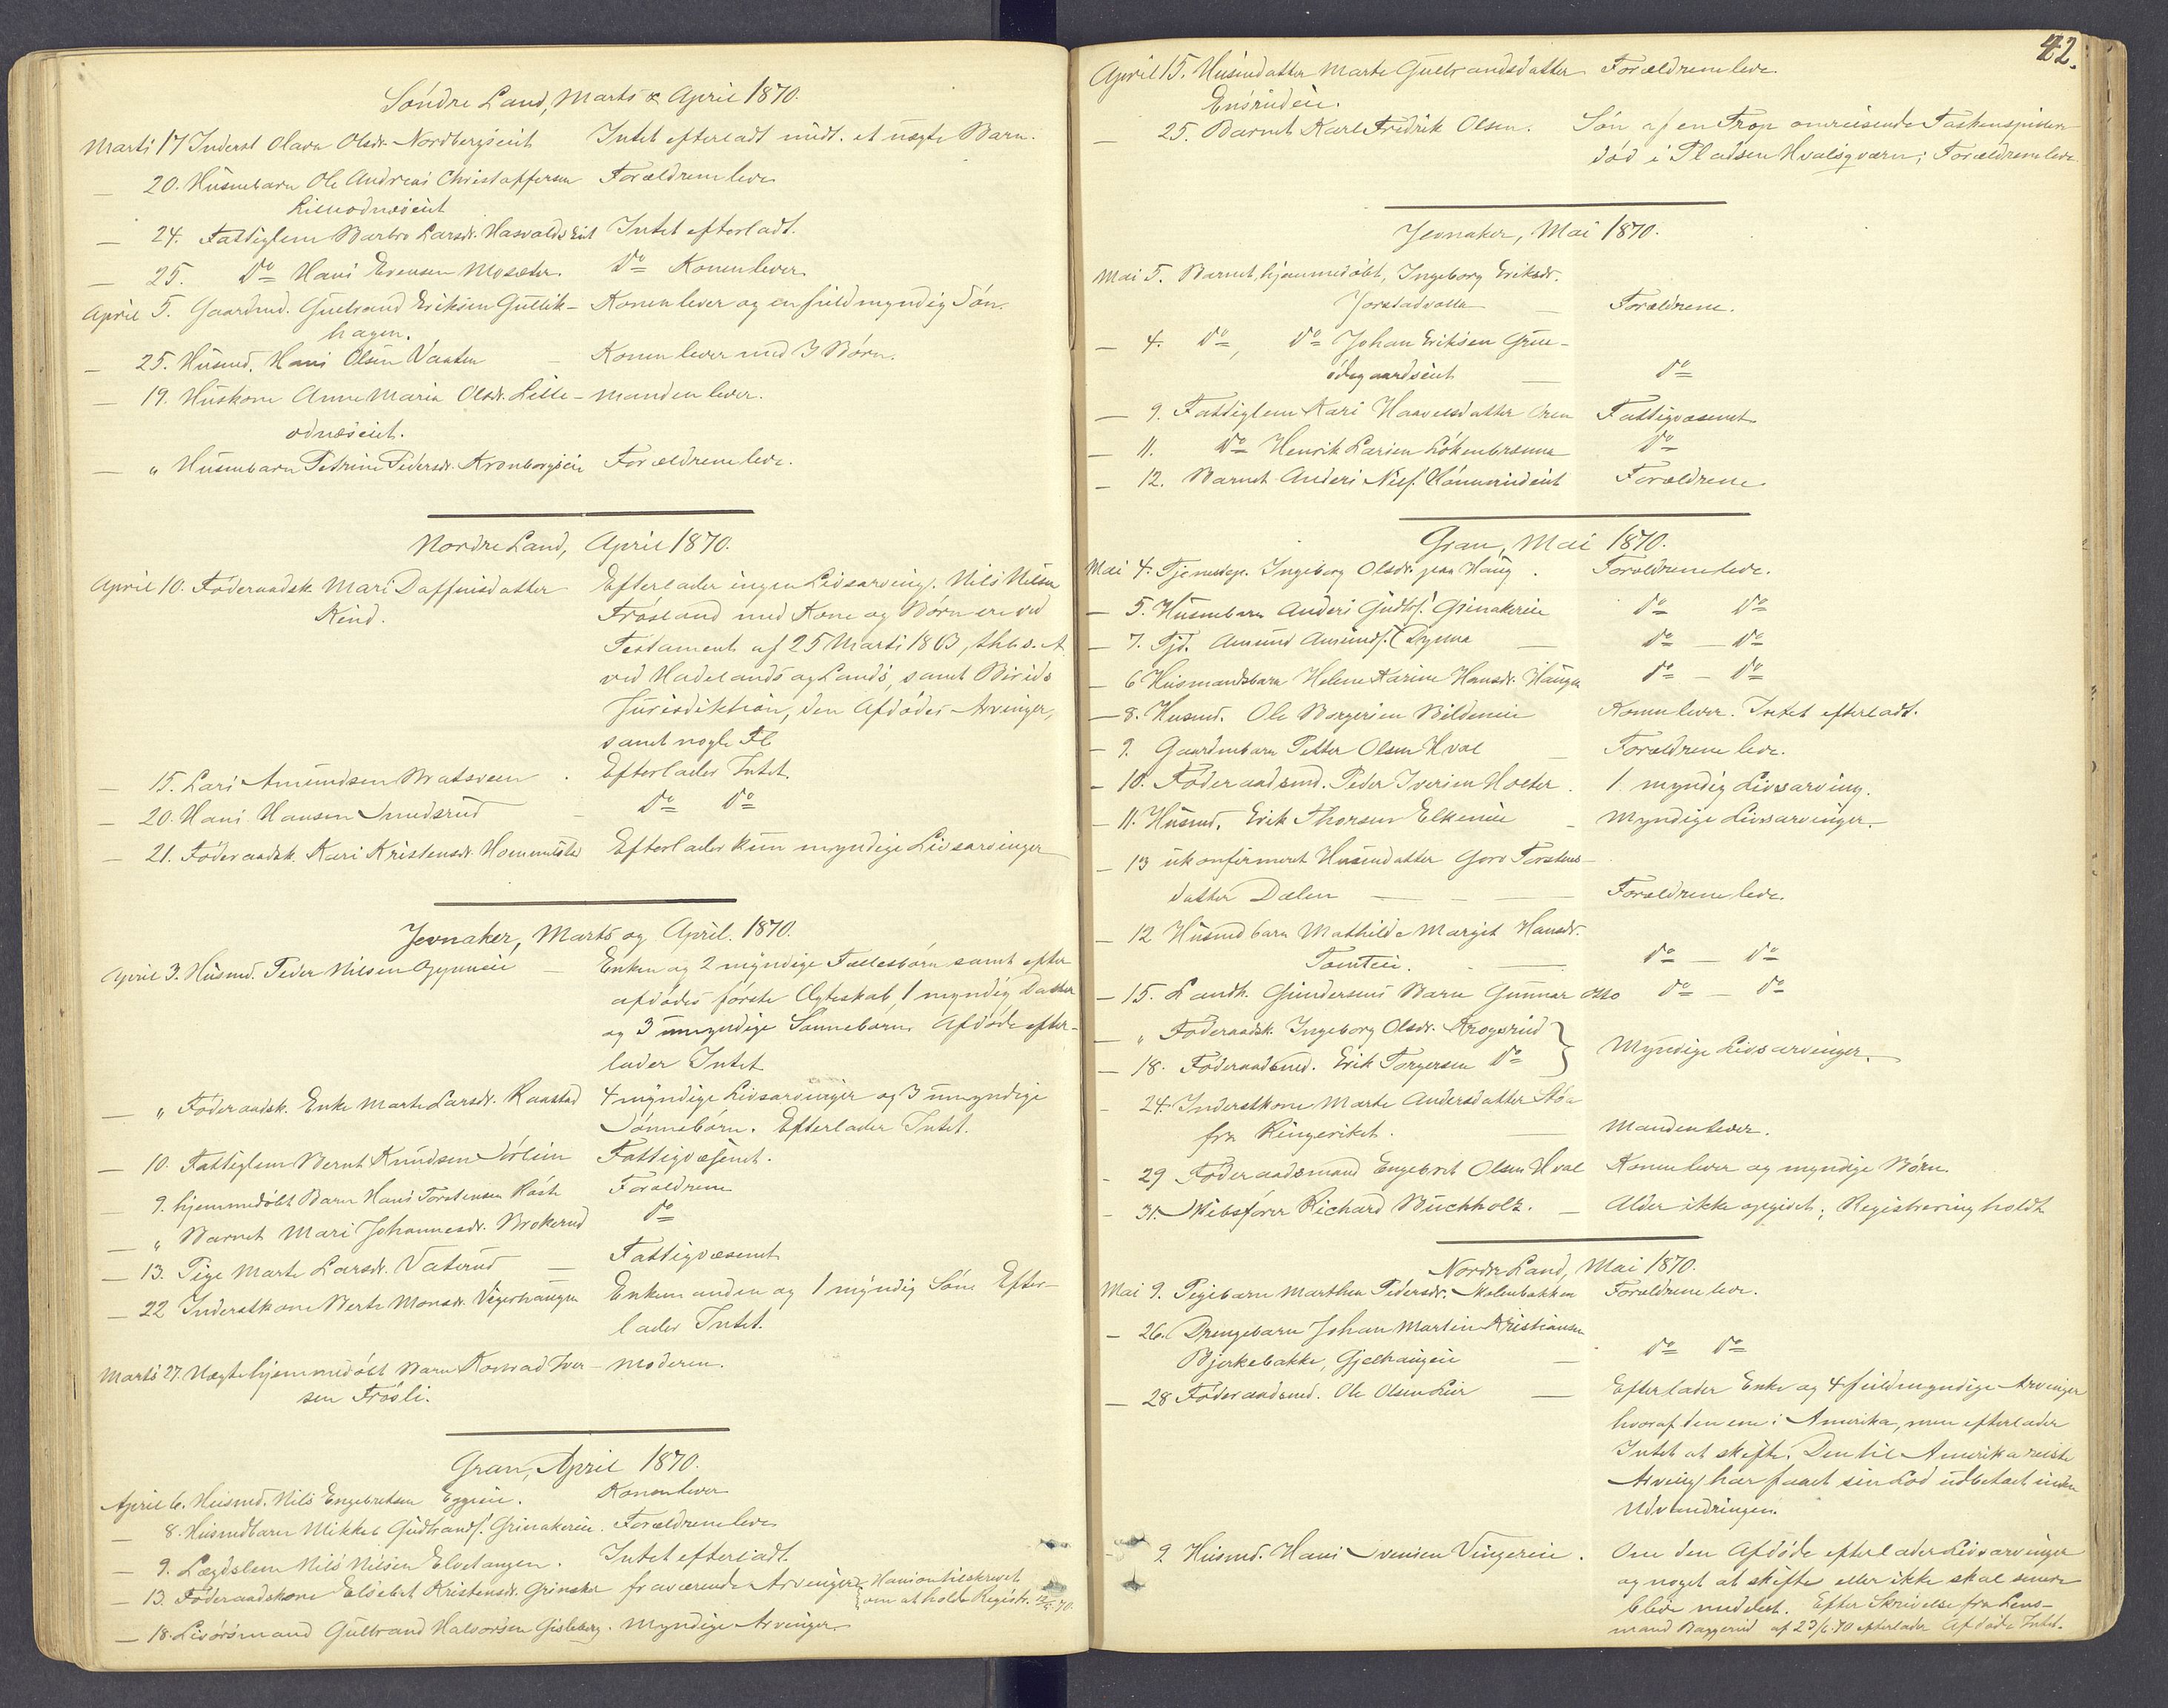 Søndre Land, Marts & April 1870.
Marts 17 Inderst Olava Olsdr. Nordbergseiet Intet efterladt undt. et uægte Barn.
— 20. Husmbarn Ole Andreas Christoffersen Forældrene leve
Lilleodnæseiet
— 24. Fattiglem Barbro Larsdr. Hasvolds Eiet Intet efterladt.
— 25. Do Hans Evensen Mosæter. Do Konen lever.
April 5. Gaardmd. Gulbrand Eriksen Gullik- Konen lever og en fuldmyndig Søn.
hagen.
— 25. Husmd. Hans Olsen Vaaten — Konen lever med 3 Børn.
— 19. Huskone Anne Maria Olsdr. Lille- Manden lever.
odnæseiet.
— " Husmbarn Petrine Pedersdr. Kronborgseie Forældrene leve.
Nordre Land, April 1870.
April 10. Føderaadsk. Mari Daffinsdatter Efterlader ingen Livsarving. Nils Nilsen
Kind. Frøsland med Kone og Børn ere ved
Testament af 25 Marts 1863, thgs.
ved Hadelands og Lands, samt Birids
Jurisdiktion, den Afdødes Arvinger,
samt nogle Fl.
— 15. Lars Amundsen Bratsveen . Efterlader Intet.
— 20. Hans Hansen Smedsrud — Do Do
— 21. Føderaadsk. Kari Kristensdr. Efterlader kun myndige Livsarvinger
Jevnaker, Marts og April. 1870.
April 3. Husmd. Peder Nilsen — Enken og 2 myndige Fællesbørn samt efter
afdødes første Ægteskab, 1 myndig Datter
og 3 umyndige Sønnebørn. Afdøde efter-
lader Intet
— " Føderaadsk. Enke Marte Larsdr. Raastad 4 myndige Livsarvinger og 3 umyndige
Sønnebørn. Efterlader Intet.
— 10. Fattiglem Bernt Knudsen Sørlien Fattigvæsenet.
— 9. hjemmedøbt Barn Hans Torstensen Forældrene
— " Barnet Mari Johannesdr. Brokerud Do
— 13. Pige Marte Larsdr. Vaterud — Fattigvæsenet
— 22 Inderstkone Berte Monsdr. Vegerhaugen Enkemanden og 1 myndig Søn. Efter-
lader Intet.
Marts 27. Uægte hjemmedøbt Barn Konrad Iver- Moderen.
sen Frøsli.
Gran, April 1870.
April 6. Husmd. Nils Engebretsen Eggeeie. Konen lever
— 8. Husmdbarn Mikkel Gudbrands. Grinakereie. Forældrene leve
— 9. Lægdslem Nils Nilsen Elvetangen. Intet efterladt.
— 13. Føderaadskone Elsebet Kristensdr. Grinaker fraværende Arvinger { Hanson tilskrevet
om at holde Registr. 12/5 70.
— 18. Livørsmand Gulbrand Halvorsen Gisleberg. Myndige Arvinger.
42.
April 15. Husmdatter Marte Gulbrandsdatter Forældrene leve.
Ensrudeie.
— 25. Barnet Karl Fredrik Olsen. Søn af en Trop omreisende Taskenspillere
død i Pladsen Hvalsqværn; Forældrene leve.
Jevnaker, Mai 1870.
Mai 5. Barnet, hjemmedøbt, Ingeborg Eriksdr.
Jorstadvolla — Forældrene.
— 4. Do, Do Johan Eriksen Grue-
ødegaardseiet — Do
— 9. Fattiglem Kari Haavelsdatter Fattigvæsenet
— 11. Do Henrik Larsen Løkenbrænna Do
— 12. Barnet Anders Nils. Forældrene
Gran, Mai 1870.
Mai 4. Tjenestep. Ingeborg Olsdr. paa Haug. Forældrene leve.
— 5. Husmbarn Anders Gudbs. Grinakereie Do Do
— 7. Tjd. Amund Amunds. Dynna — Do — Do
— 6 Husmandsbarn Helene Karine Hansdr. Haugen Do — Do
— 8. Husmd. Ole Borgersen Bildeneie Konen lever. Intet efterladt.
— 9. Gaardmbarn Petter Olsen Hval — Forældrene leve.
— 10. Føderaadsmd. Peder Iversen Holter. 1 myndig Livsarving.
— 11. Husmd. Erik Thorsen Elkeneie — Myndige Livsarvinger.
— 13 ukonfirmeret Husmdatter Goro Torstens-
datter Dælen — — — Forældrene leve.
— 12 Husmdbarn Mathilde Margit Hansdr.
Tomteie. — Do — Do
— 15. Landh. Gundersens Barn Gunnar Otto Do — Do
— " Føderaadsk. Ingeborg Olsdr. Krogsrud }
— 18. Føderaadsmd. Erik Torgersen Do } Myndige Livsarvinger.
— 24. Inderstkone Marte Andersdatter
fra Ringeriket. — Manden lever.
— 29 Føderaadsmand Engebret Olsen Hval Konen lever og myndige Børn.
— 31. Skibsfører Richard Buchholz. — Alder ikke opgivet; Registrering holdt
Nordre Land, Mai 1870.
Mai 9. Pigebarn Marthea Pedersdr. Skolenbakken Forældrene leve.
— 26. Drengebarn Johan Martin Kristiansen
Bjerkebakke, Gjelhaugeie — Do Do
— 28 Føderaadsmd. Ole Olsen Lier — Efterlader Enke og 4 fuldmyndige Arvinger
hvoraf den ene i Amerika, men efterlader
Intet at skifte. Den til Amerika reiste
Arving har faaet sin Lod udbetalt inden
Udvandringen.
— 9. Husmd. Hans Svensen Vingereie. Om den Afdøde efterlader Livsarvinger
og noget at skifte eller ikke skal senere
blive meddelt. Efter Skrivelse fra Lens-
mand Baggerud af 23/6 70 efterlader Afdøde Intet.